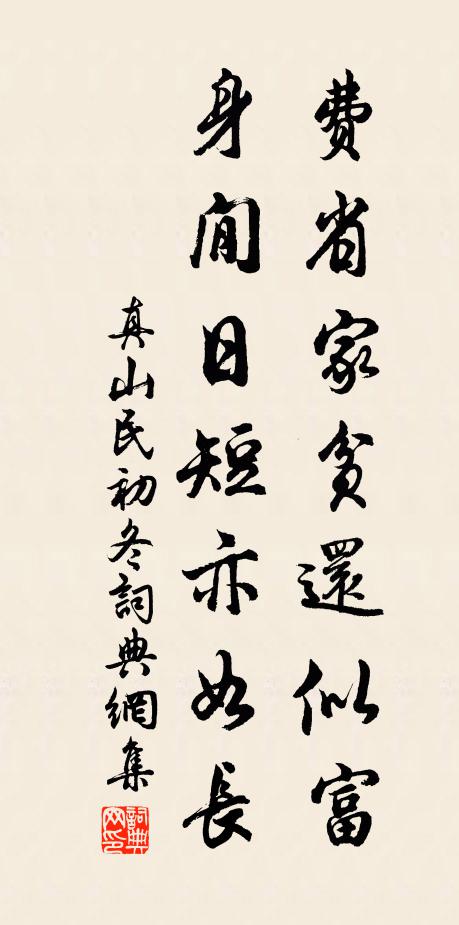 費省家貧還似富
身閒日短亦如長
真山民初冬詞典網集
詞典
网印